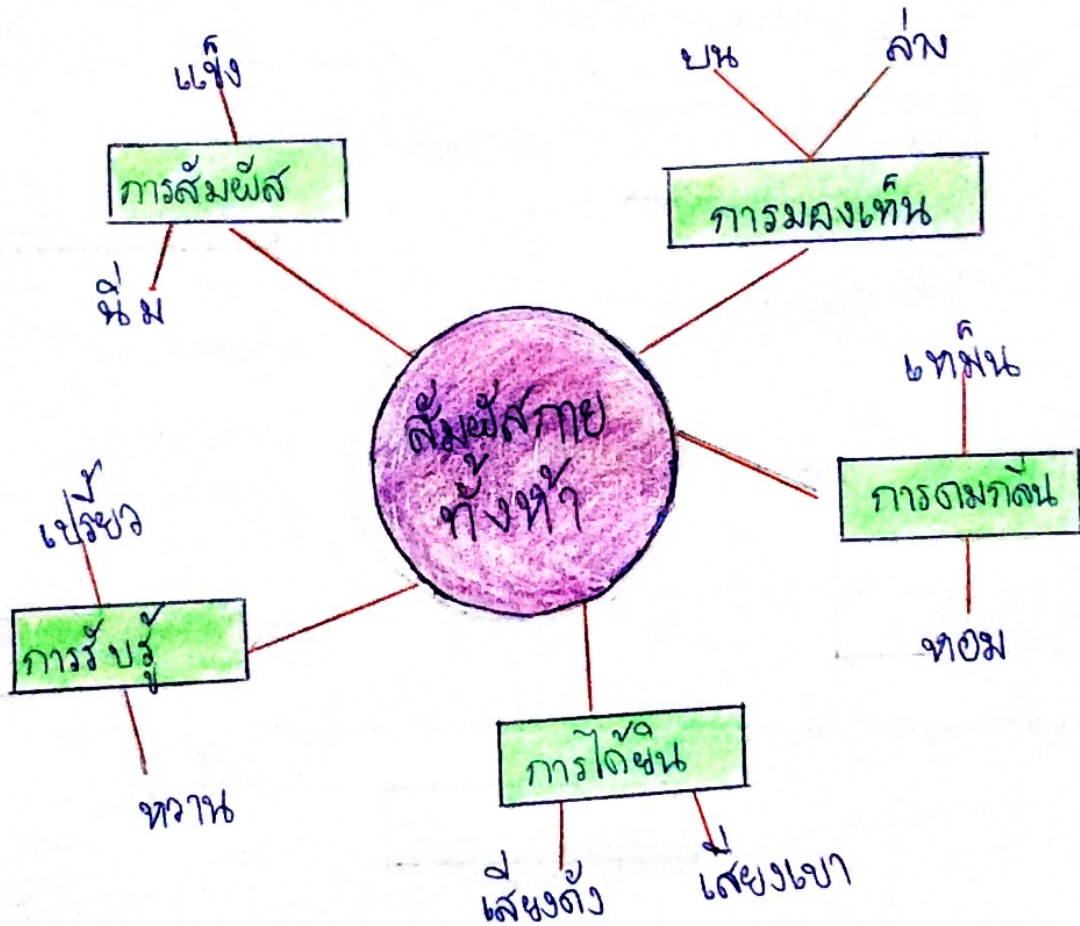 แข็ง
การสัมผัส
นิ่ม
บน
ล่าง
การมองเห็น
สัมผัสกาย
ทั้งห้า
เหม็น
การดมกลิ่น
หอม
เปรี้ยว
การรับรู้
หวาน
การได้ยิน
เสียงดัง
เสียงเบา